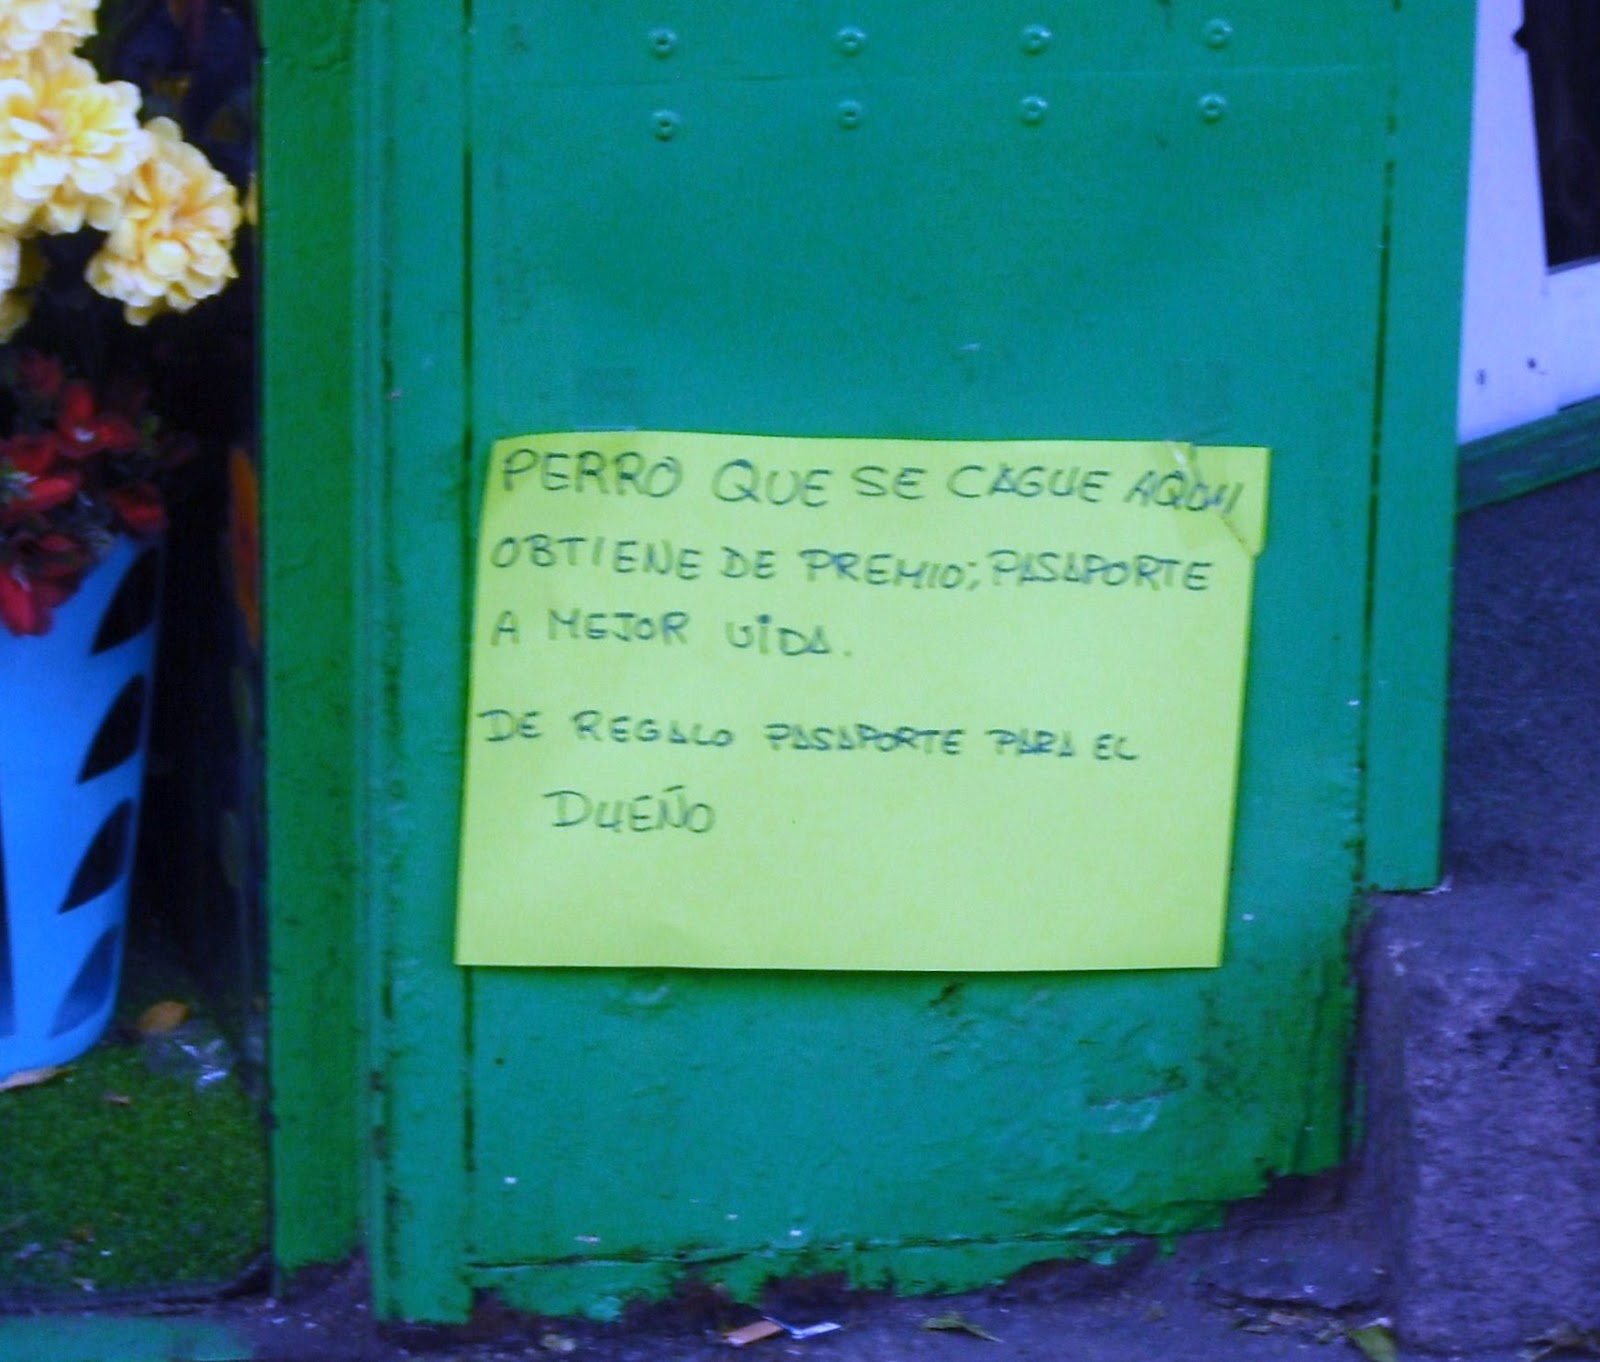 PERRO QUE SE CAGUE AQUI
OBTIENE DE PREMIO; PASAPORTE
A MEJOR VIDA.
DE REGALO PASAPORTE PARA EL
DUEÑO